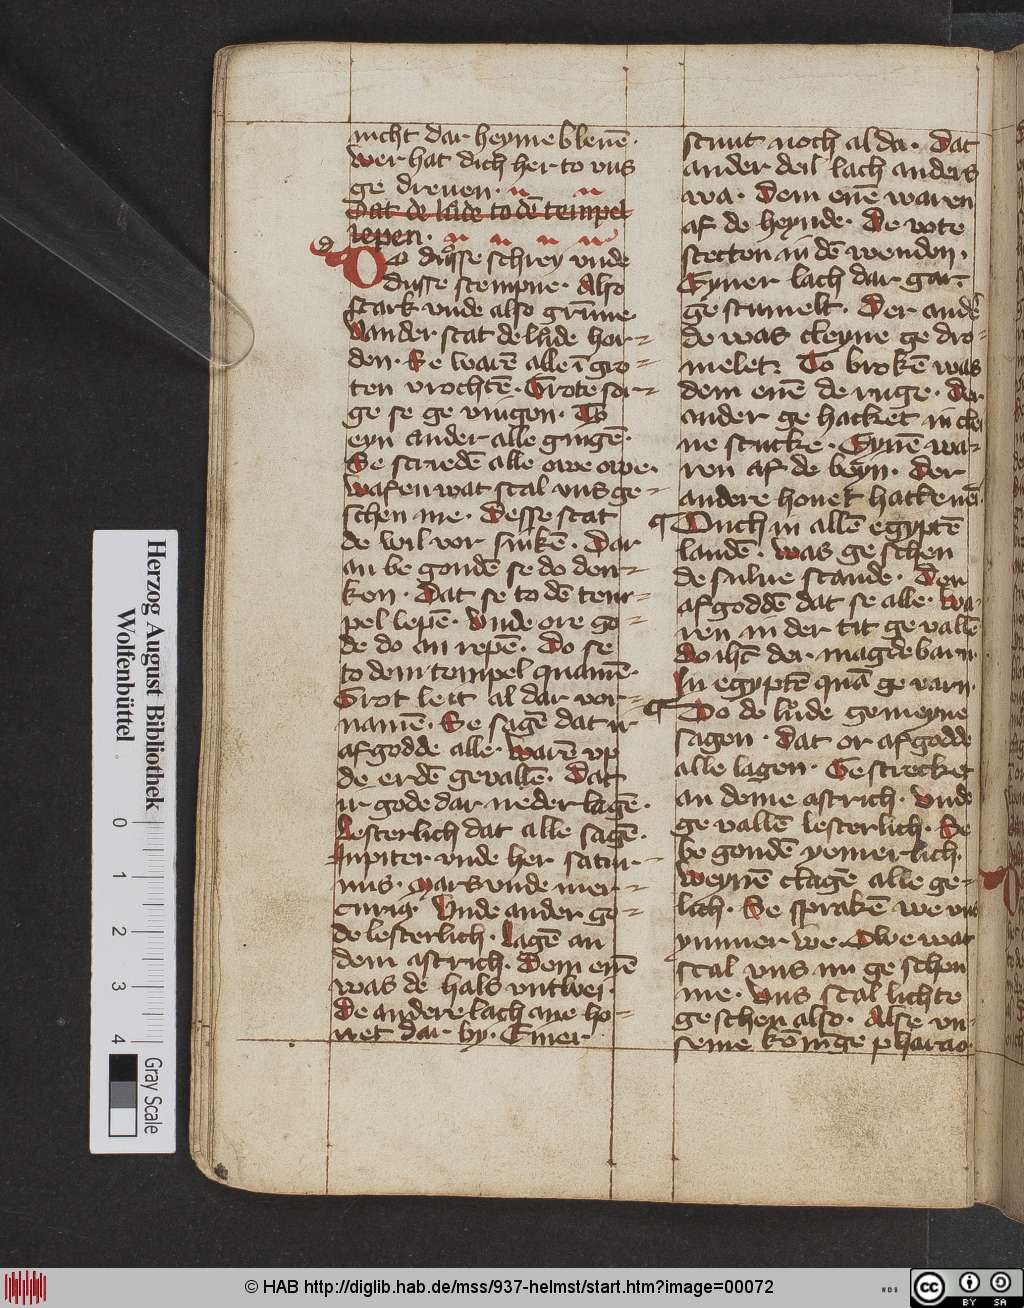 nicht dar heyme bleuē·
wer hat dich her to vns
ge dreuen·
Dat de lude to dē tempel
lepen·
DO dusse schrey vnde
dusse stempne· Also
stark vnde also grimme
wander stat de lude hor=
den· Se warē alle ī gro=
ten vrochtē· Grote sor=
ge se ge vnigen· To
eyn ander alle gingē·
Se scriedē alle owe owe·
wafen wat scal vns ge=
schen me· Desse stat
de wil vor sinkē· Dar
an be gondē se do den=
ken· Dat se to dē tem=
pel lepē· Vnde ore go=
de do an repē· Do se
to dem tempel quamē·
Grot leit al dar vor=
namē· Se sagē dat ir
afgodde alle· warē vp
de erdē gevallē· Dat
ir gode dar neder lagē·
Lesterlich dat alle sagē·
Jupiter vnde her satur=
nus· Mars vnde mer=
curiꝰ· Vnde ander go=
de lesterlich· Lagē an
dem astrich· Dem enē
was de hals vntwei·
De andere lach ane ho=
uet dar by· Einer
stunt noch al da· Dat
ander deil lach anders
wa· Dem enē waren
af de heynde· De vote
stecten in dē wenden·
Eyner lach dar gar
ge stummelt· Der ande
de was cleyne ge dro=
melet· To brokē was
dem enē de rugge· Der
ander ge hacket in clei
ne stucke· Eynē wa=
ren af de beyn· Der
andere houet hacke nen·
Ouch in allē egyptē
landē· was ge schen
de sulue scande· Den
afgoddē dat se alle· wa=
ren in der tit ge vallē
do ihc̄ der magde barn·
In egyptē quā ge varn·
Do de lude gemeyne
sagen· Dat or afgodde
alle lagen· Gestrecket
an deme astrich· Vnde
ge vallē lesterlich· Se
be gondē yemerlich·
weynē clagē alle ge=
lich· Se sprakē we vns
ymmer we· Owe wat
scal vns nu ge schen
me· Vns scal lichte
ge schen also· Alse vn=
seme kōnige pharao·
Herzog August Bibliothek
Wolfenbüttel
0 1 2 3 4
Gray Scale
© HAB http://diglib.hab.de/mss/937-helmst/start.htm?image=00072
WDB
cc BY SA